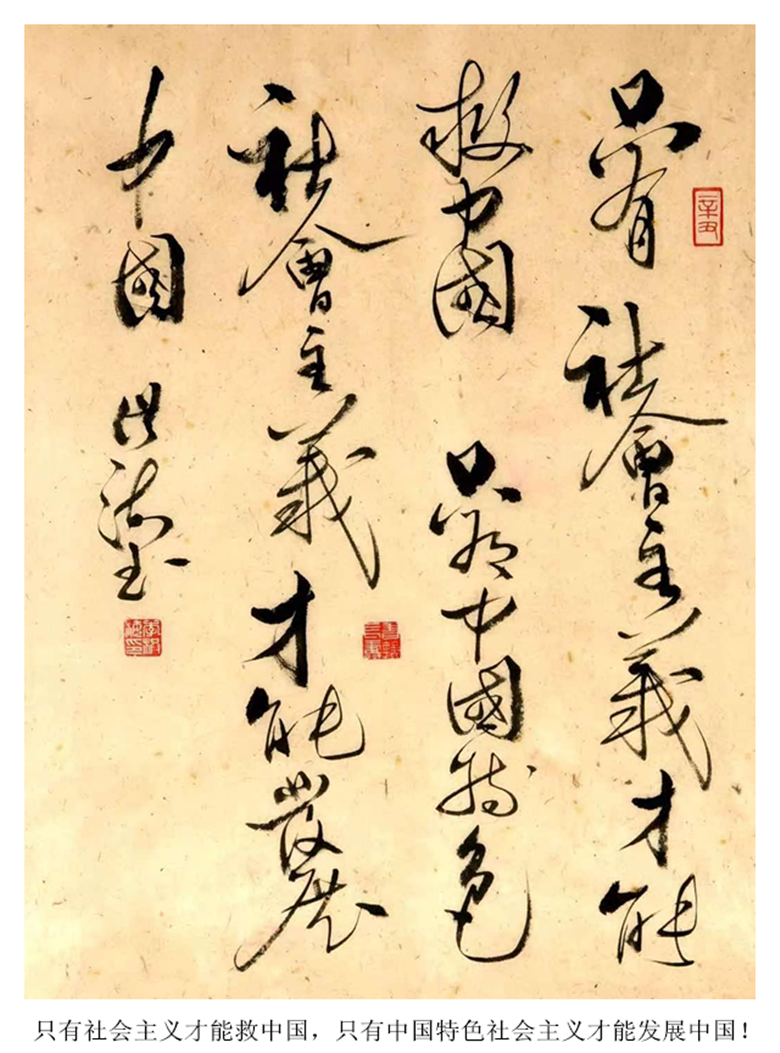 辛丑
只有社會主義才能
救中國 只有中國特色
社會主義才能發展
中國
只有社会主义才能救中国，只有中国特色社会主义才能发展中国！